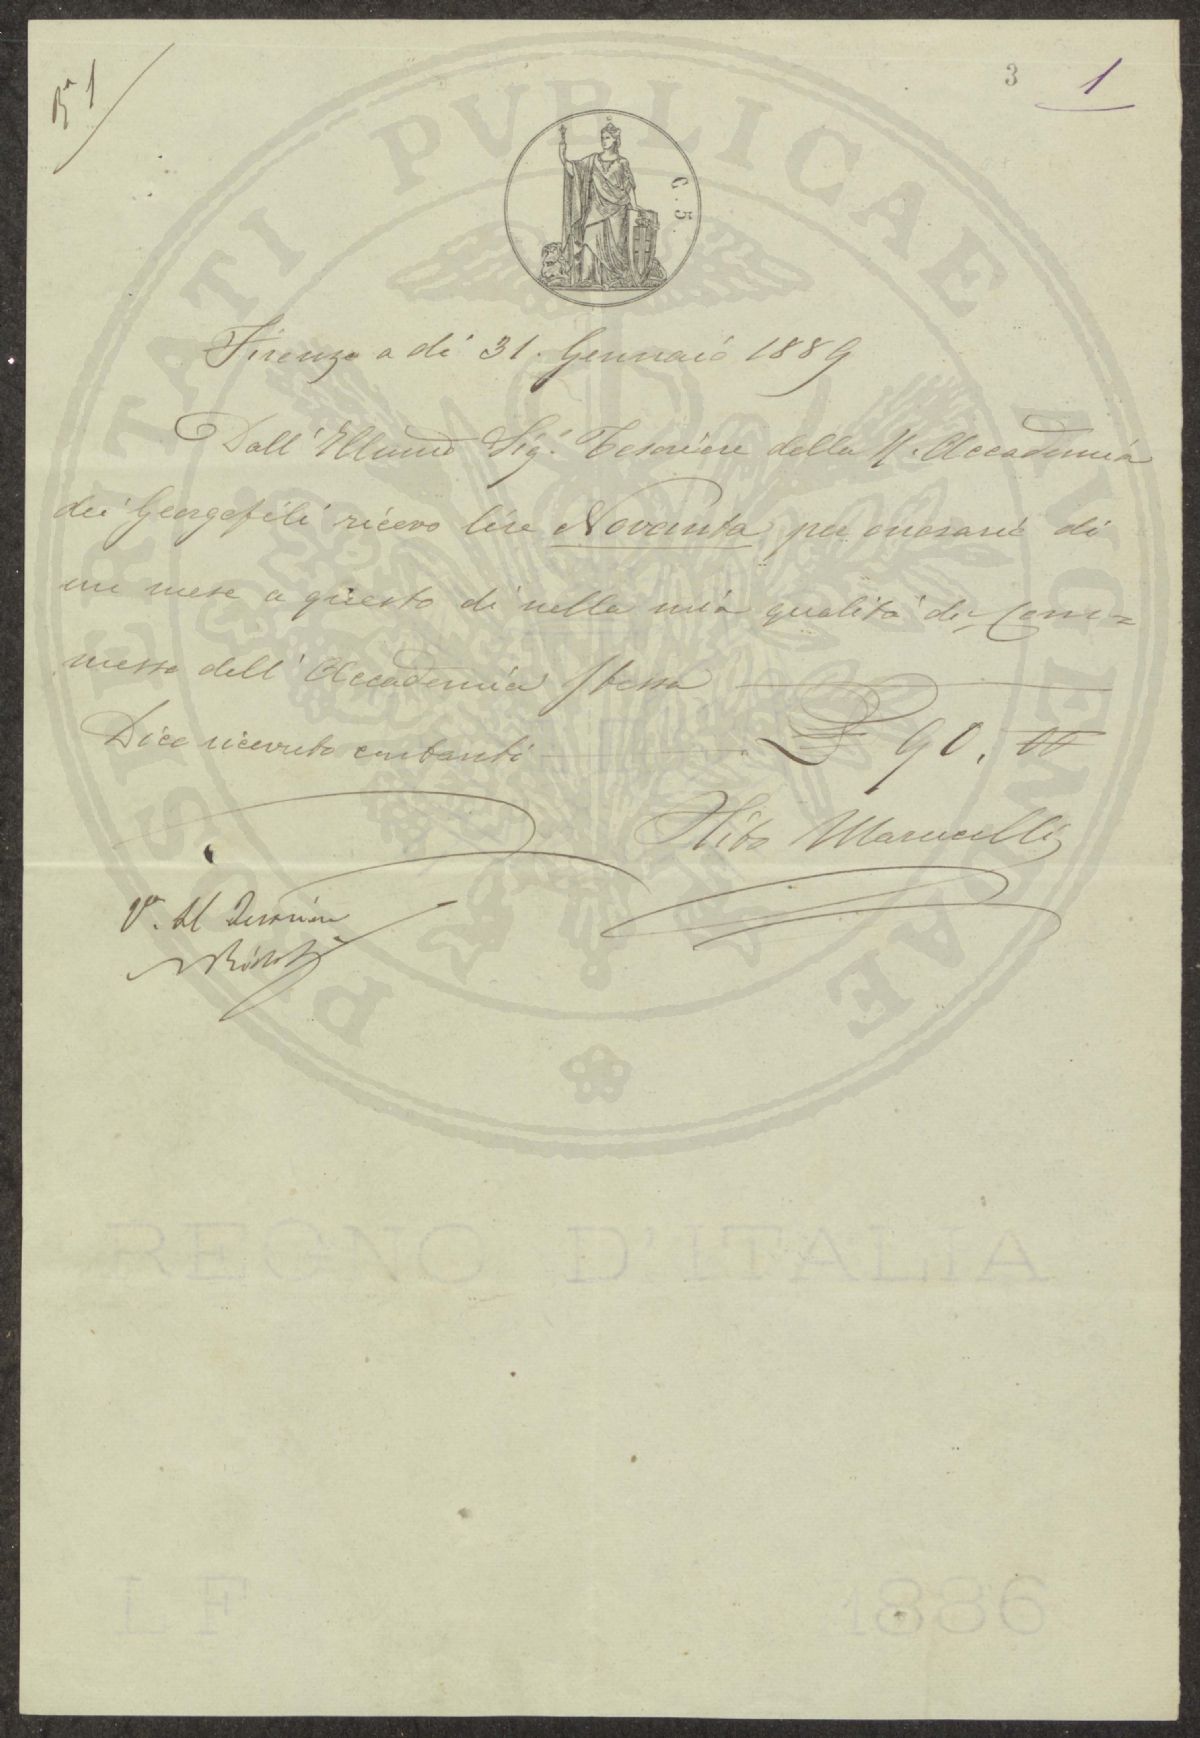 3 1
C. 5.
Firenze a dì 31. Gennaio 1889
Dall' Illumo Sig.r Tesoriere della R. Accademia
dei Georgofili ricevo lire Novanta per onorario di
un mese a questo dì nella mia qualità di Com=
messo dell' Accademia stessa
Dico ricevuto contanti L 90. 00
Marucelli
Vo. Il Tesoriere
PROSPERITATI PVBLICAE AVGENDAE
REGNO D'ITALIA
LF 1886